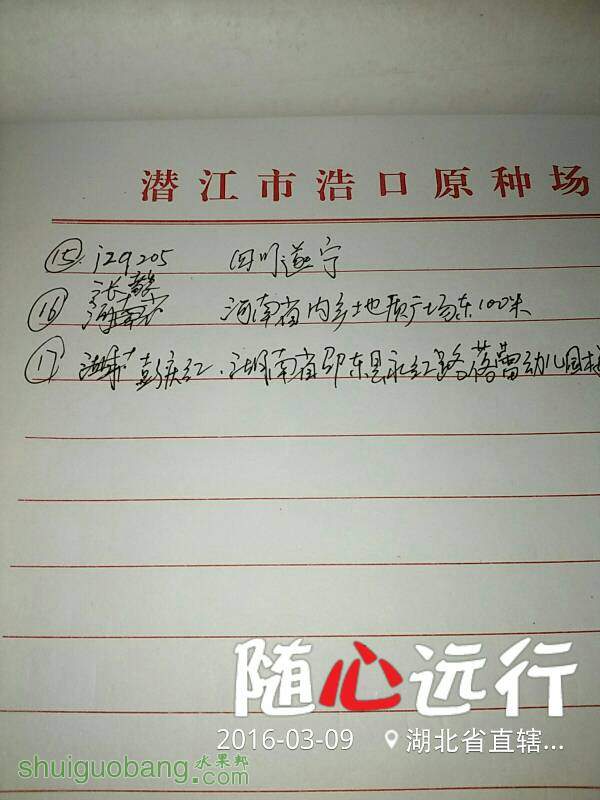 潜江市浩口原种场
⑮ jzq205 四川遂宁
⑯ 张赣 河南省内乡地质广场东100米
⑰ 彭庆红. 湖南省邵东县永红路蓓蕾幼儿园
随心远行
2016-03-09 湖北省直辖...
shuiguobang.com 水果邦